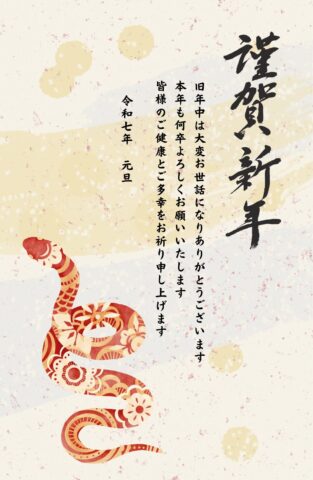 謹賀新年
旧年中は大変お世話になりありがとうございます
本年も何卒よろしくお願いいたします
皆様のご健康とご多幸をお祈り申し上げます
令和七年　元旦